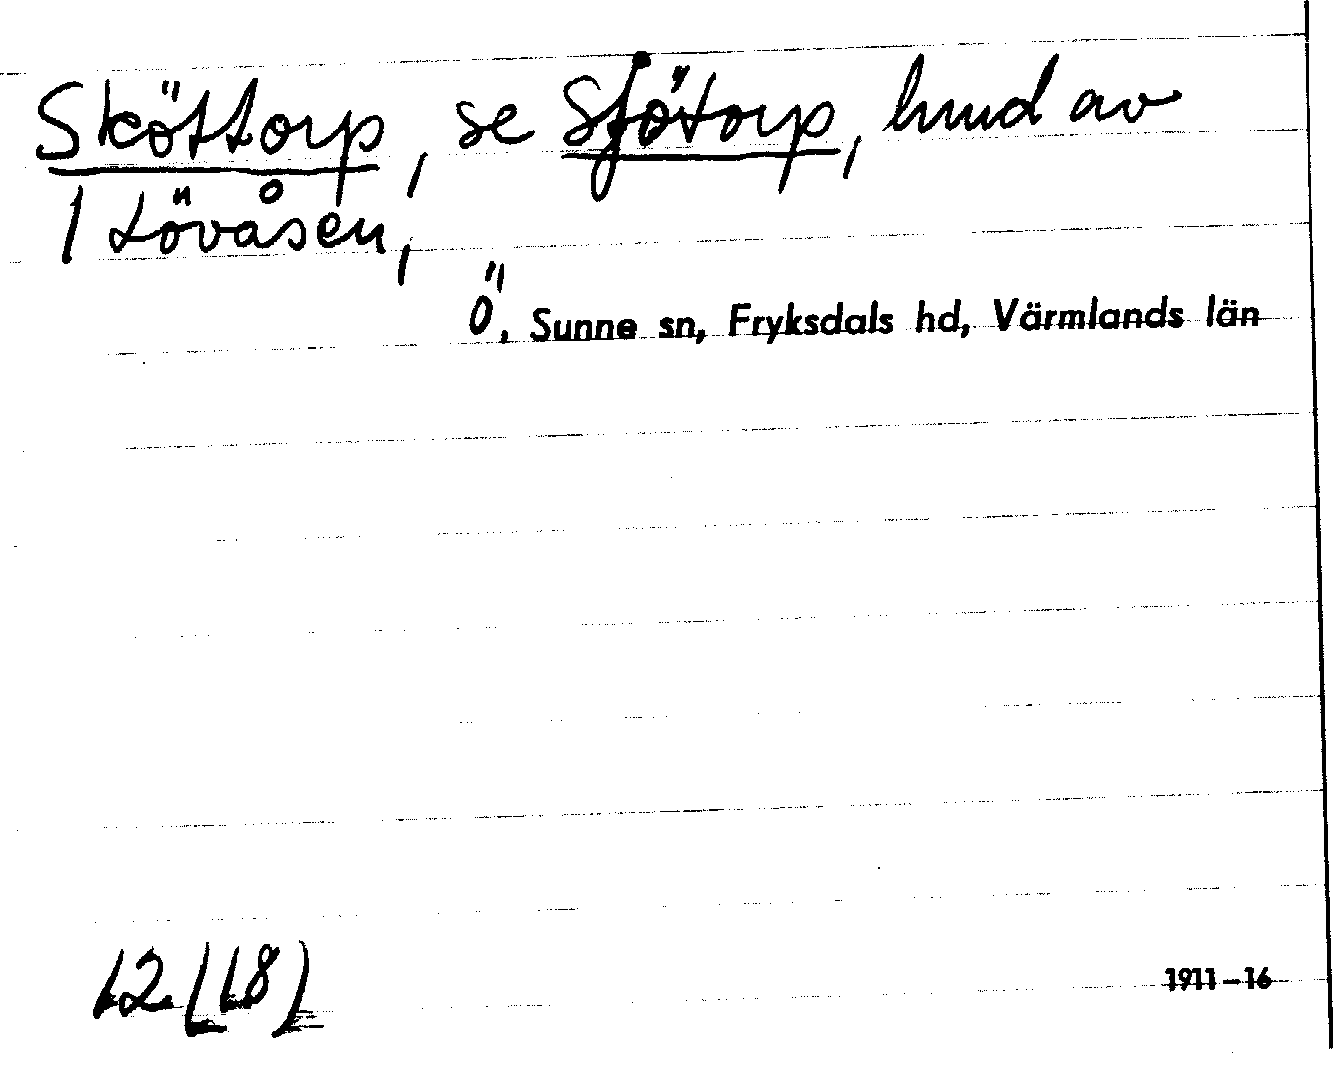 Sköttorp, se Sjötorp, hmd av
1 Lövåsen,
Ö, Sunne sn, Fryksdals hd, Värmlands län
12 [18]
1911-16